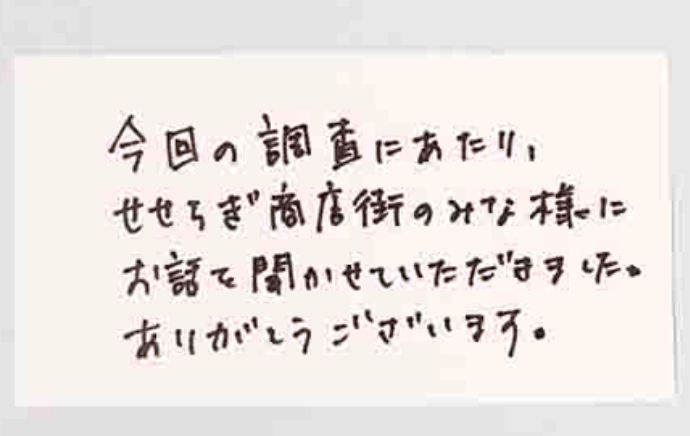 今回の調査にあたり、
せせらぎ商店街のみな様に
お話を聞かせていただきました。
ありがとうございます。